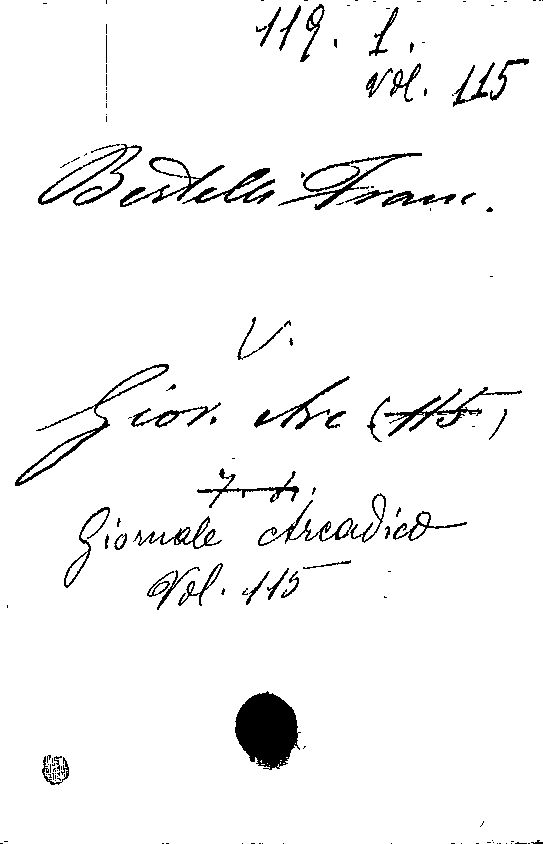 119. 1.
vol. 115
Bertelli Fran.
V.
Gior. Arc (115)
7. 1.
Giornale Arcadico
Vol. 115